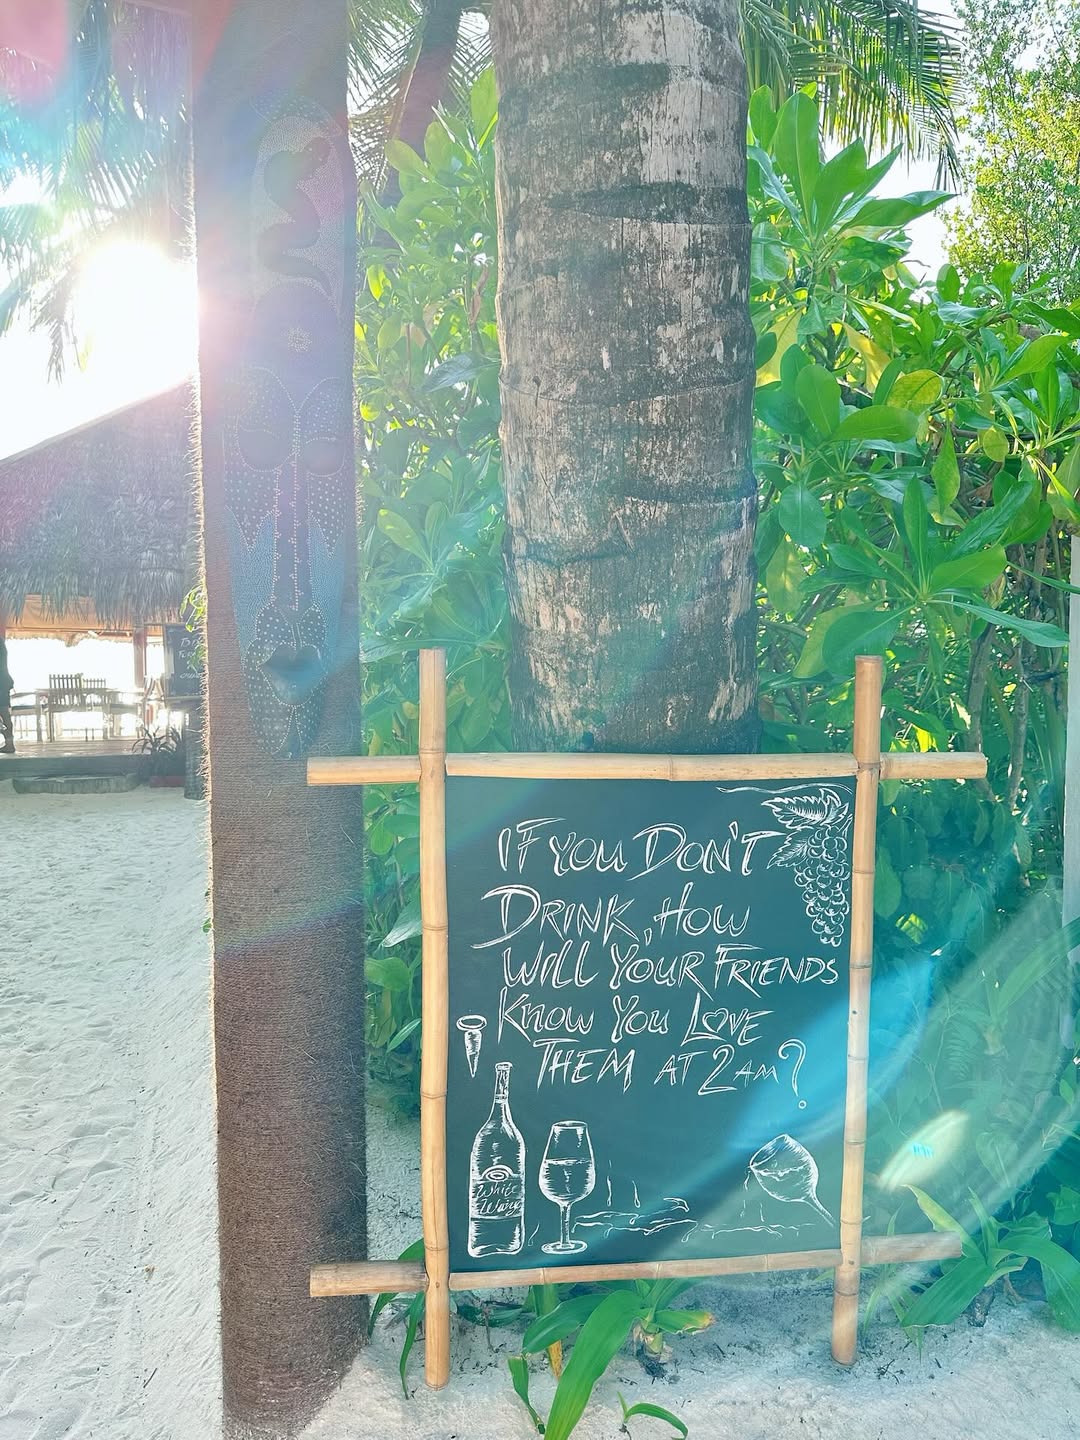 IF YOU DON'T
DRINK, HOW
WILL YOUR FRIENDS
KNOW YOU LOVE
THEM AT 2AM?
White